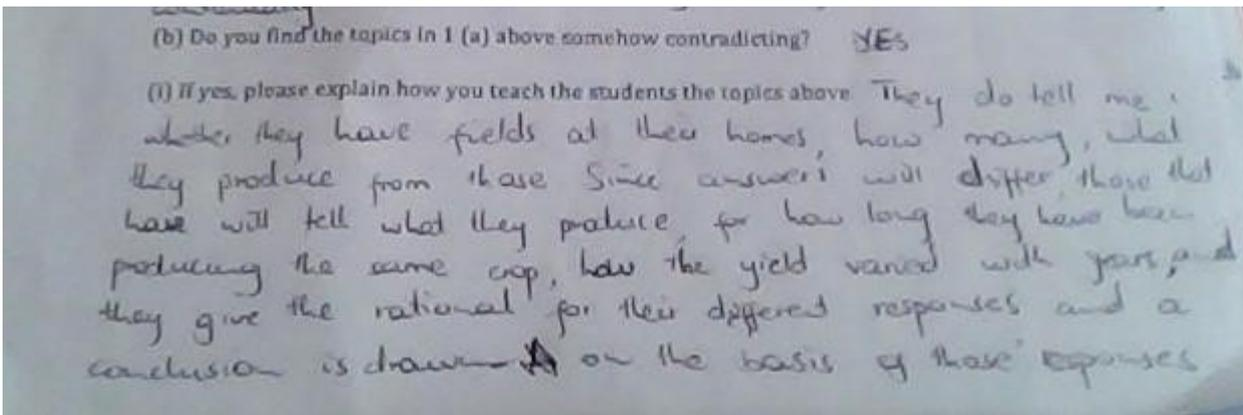 (b) Do you find the topics in 1 (a) above somehow contradicting? YES
(i) If yes, please explain how you teach the students the topics above They do tell me
whether they have fields at their homes, how many, what
they produce from those Since answers will differ those that
have will tell what they produce, for how long they have been
producing the same crop, how the yield varied with years, and
they give the rational for their different responses and a
conclusion is drawn on the basis of those reponses